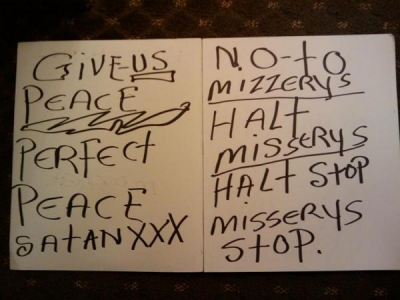 GIVE-US
PEACE
PERFECT
PEACE
SATANXXX
N.O-to
MIZZERYS
HALt
MISSERYS
HALt StOP
MISSERYS
StOP.